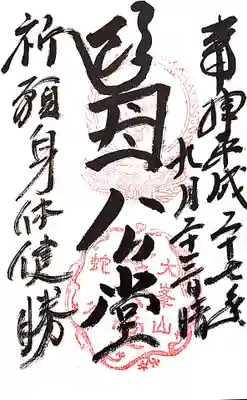 奉拝平成二十七年
九月二十三日晴
母公堂
祈願身体健勝
大峯山
蛇